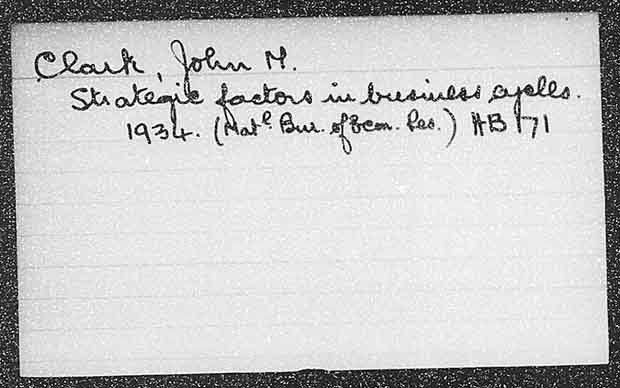 Clark, John M.
Strategic factors in business cycles.
1934. (Natl. Bur. of Econ. Res.) HB 171